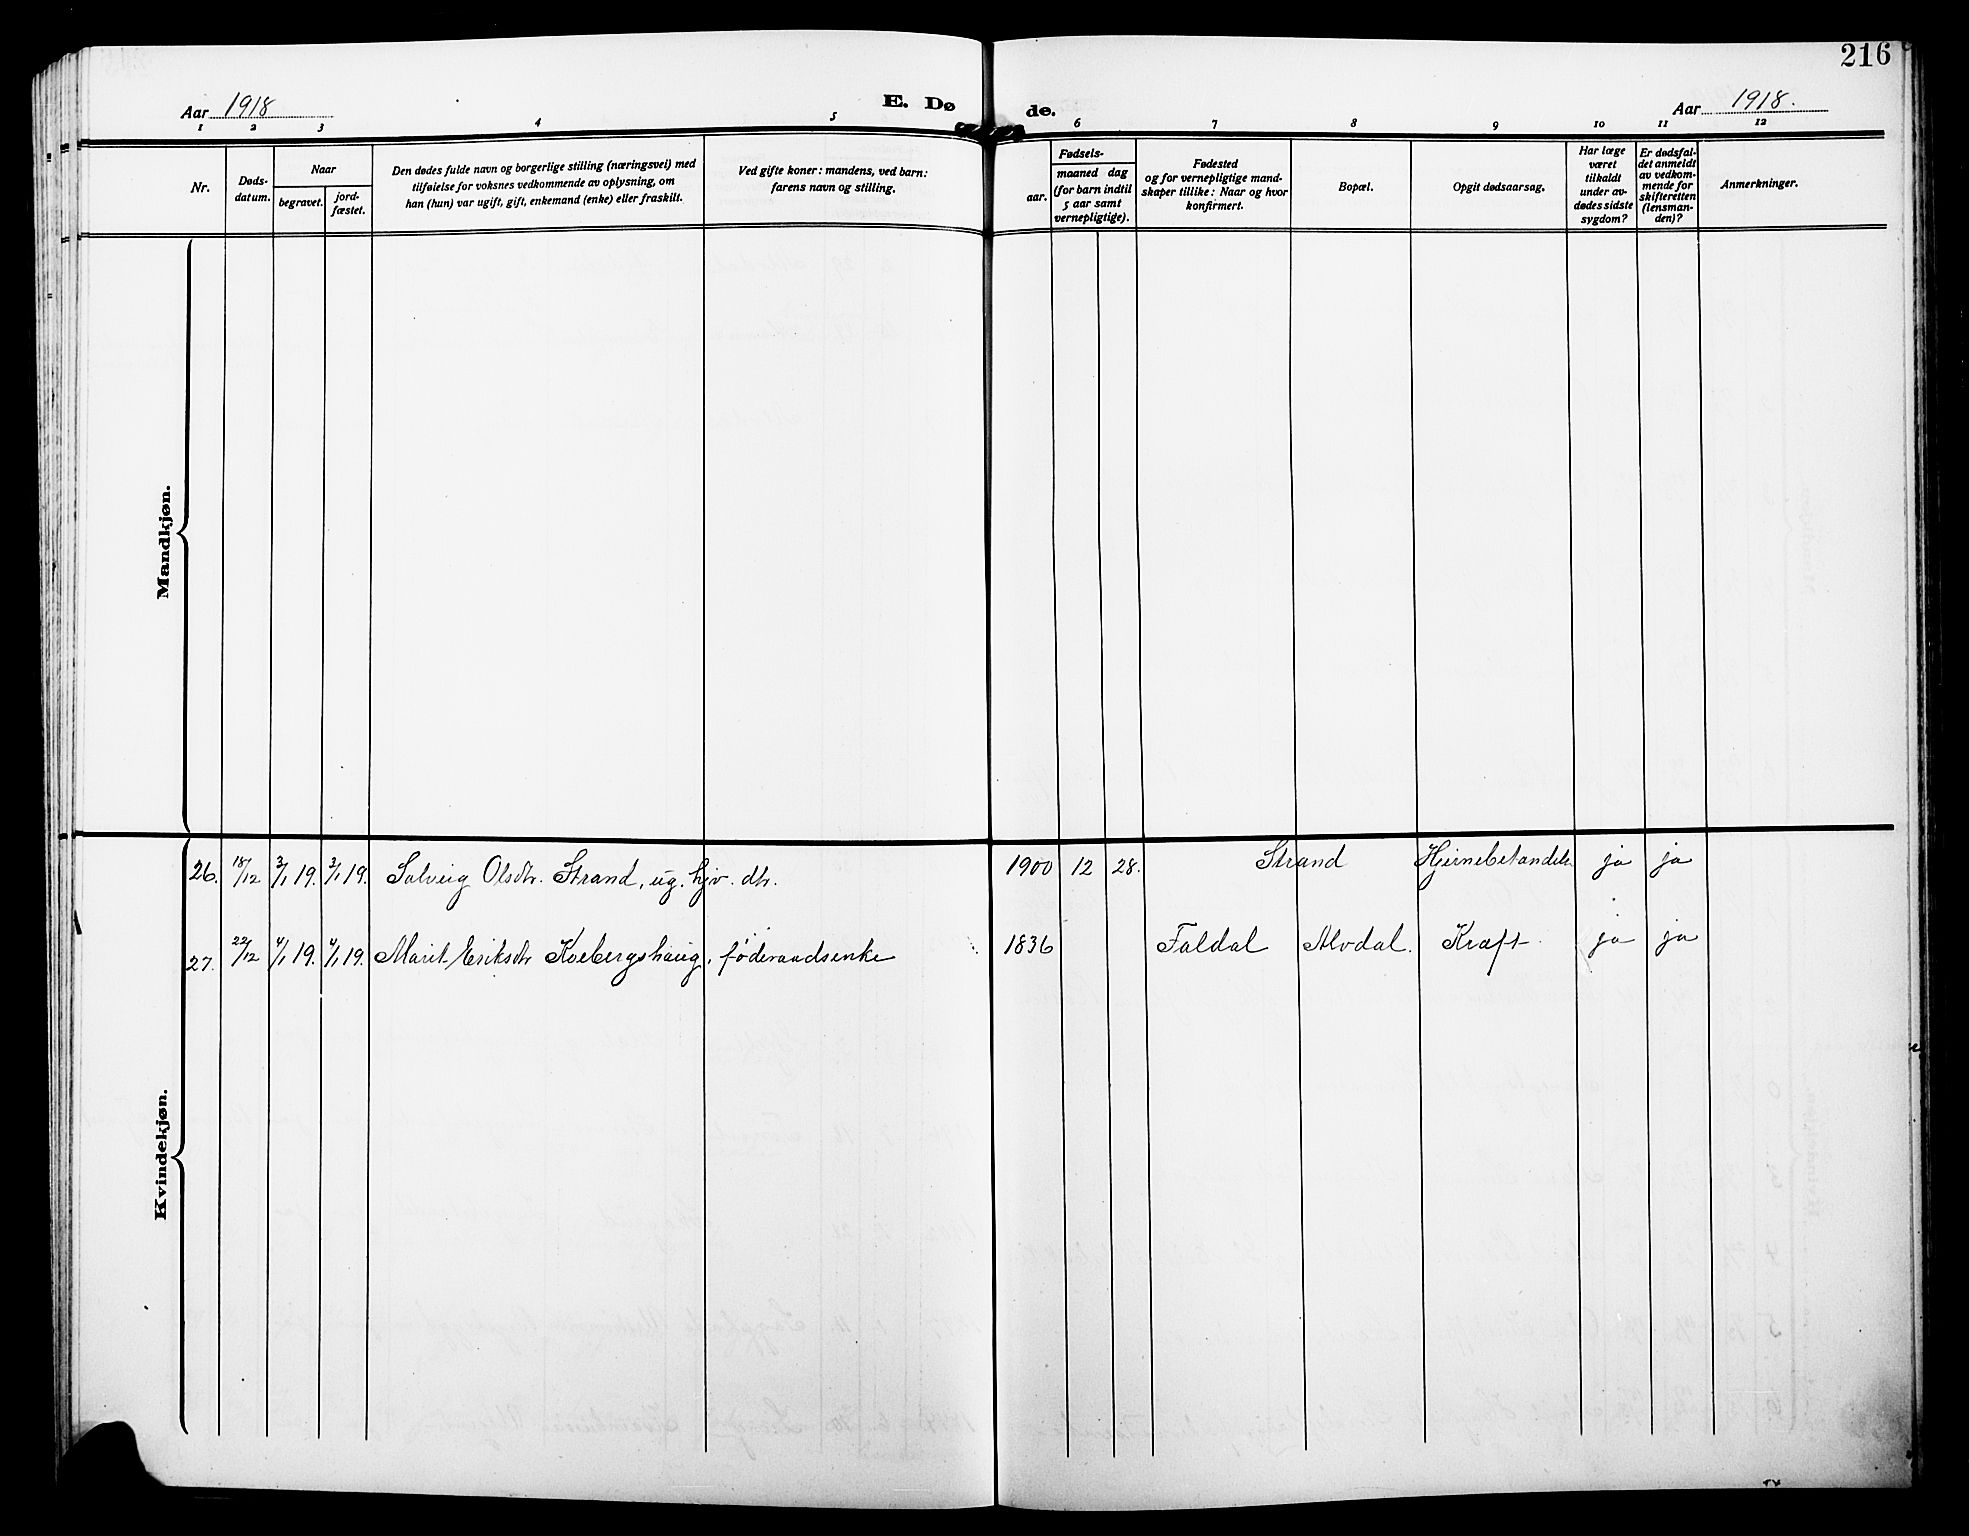 216
Aar 1918
E. Dø
de.
Aar 1918.
1 2 3 4 5 6 7 8 9 10 11 12
Nr.
Døds-
datum.
Naar
begravet.
jord-
fæstet.
Den dødes fulde navn og borgerlige stilling (næringsvei) med
tilføielse for voksnes vedkommende av oplysning, om
han (hun) var ugift, gift, enkemand (enke) eller fraskilt.
Ved gifte koner: mandens, ved barn:
farens navn og stilling.
Fødsels-
aar.
maaned dag
(for barn indtil
5 aar samt
vernepligtige).
Fødested
og for vernepligtige mand-
skaper tillike: Naar og hvor
konfirmert.
Bopæl.
Opgit dødsaarsag.
Har læge
været
tilkaldt
under av-
dødes sidste
sygdom?
Er dødsfal-
det anmeldt
av vedkom-
mende for
skifteretten
(lensman-
den)?
Anmerkninger.
Mandkjøn.
Kvindekjøn.
26. 18/12 3/1 19. 3/1 19. Solveig Olsdtr. Strand, ug. hjv. dtr. 1900 12 28. Strand Hjernebetændels. ja ja
27. 22/12 4/1 19. 4/1 19. Marit Eriksdtr Kvebergshaug, föderaadsenke 1836 Faldal Alvdal. Kræft. ja ja